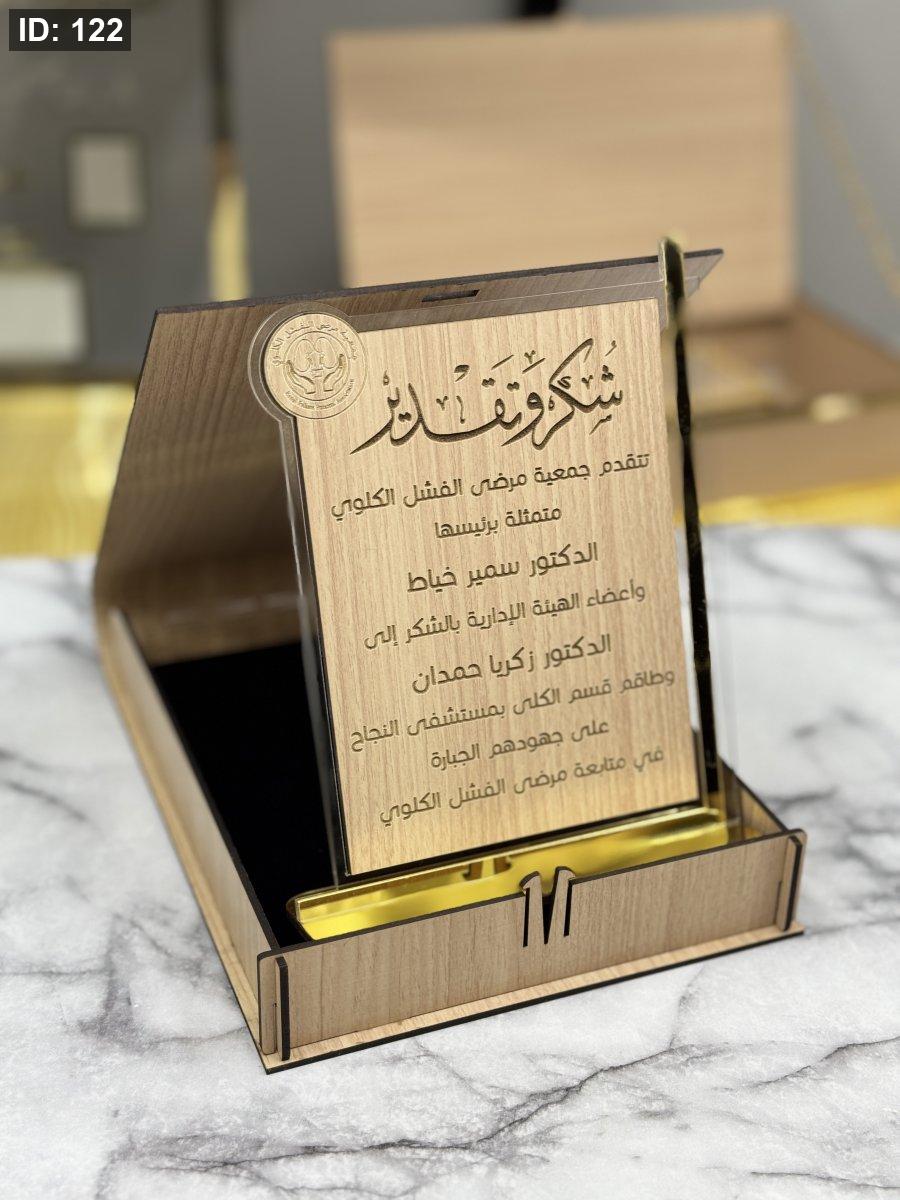 ID: 122
جمعية مرضى الفشل الكلوي
شكر وتقدير
تتقدم جمعية مرضى الفشل الكلوي
متمثلة برئيسها
الدكتور سمير خياط
وأعضاء الهيئة الإدارية بالشكر إلى
الدكتور زكريا حمدان
وطاقم قسم الكلى بمستشفى النجاح
على جهودهم الجبارة
في متابعة مرضى الفشل الكلوي